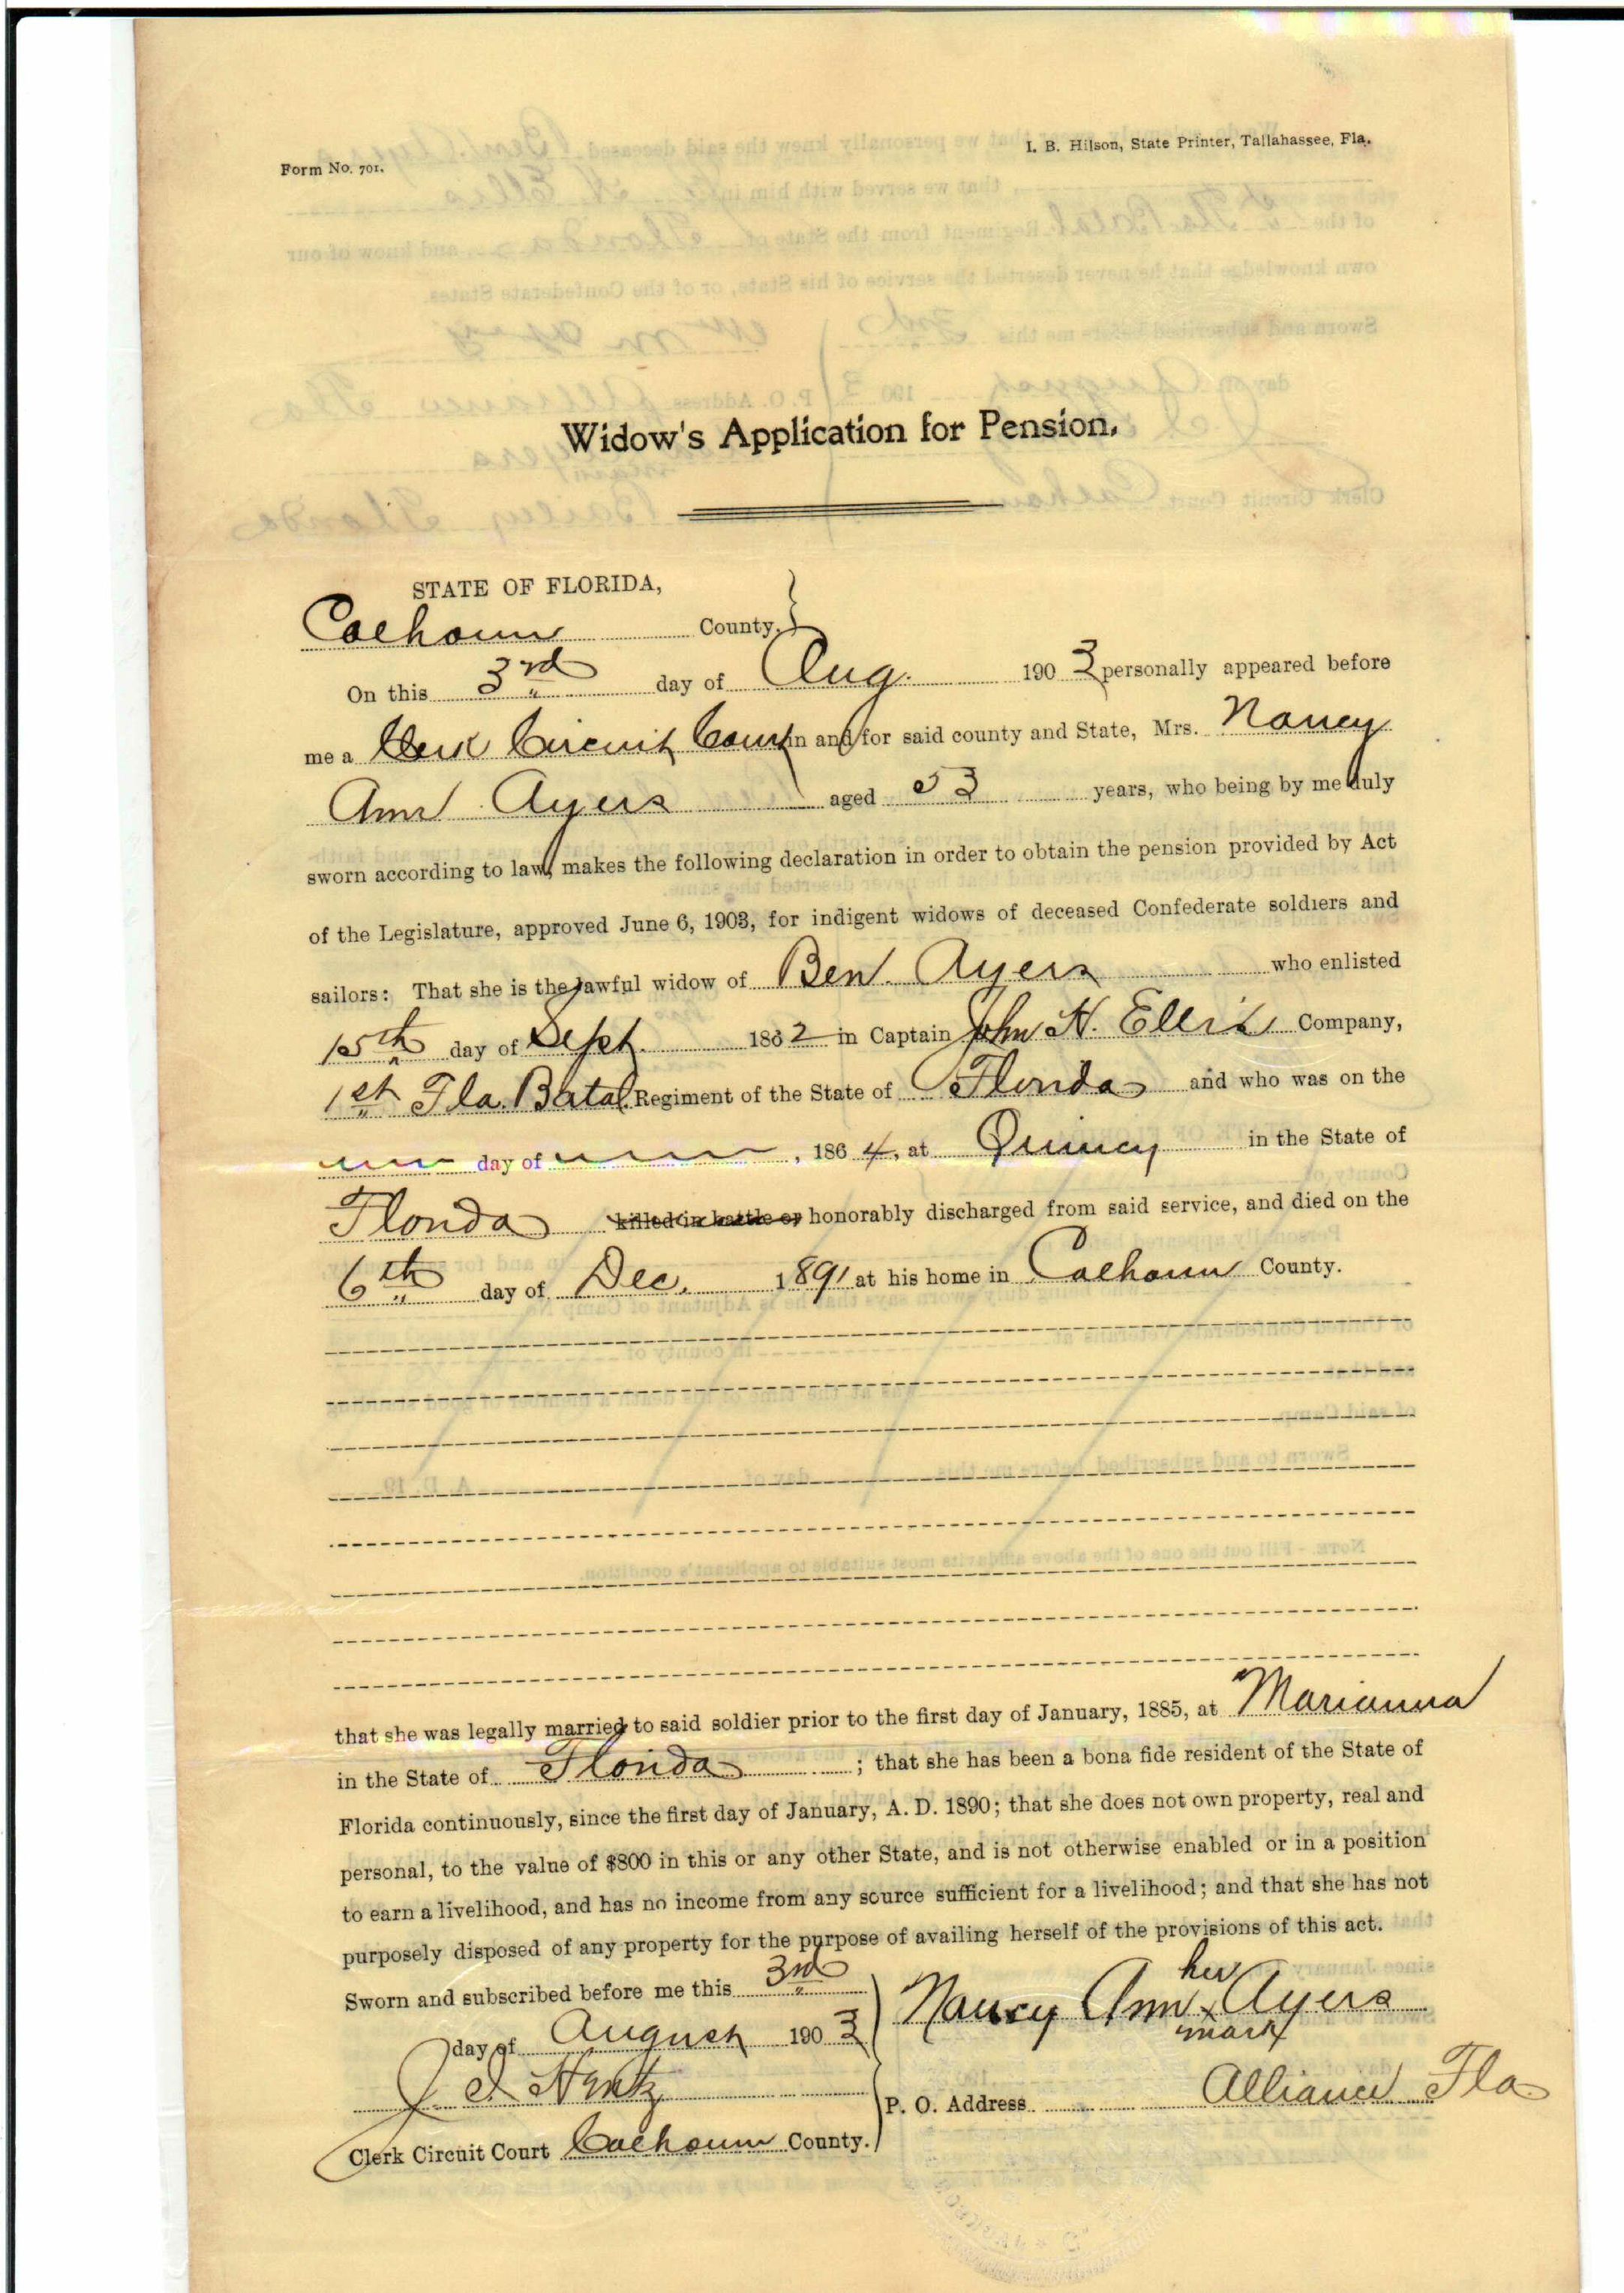 I. B. Hilson, State Printer, Tallahassee, Fla.
Form No. 701.
Widow's Application for Pension.
STATE OF FLORIDA,
Calhoun County.
On this 3rd day of Aug. 1903 personally appeared before
me a Clerk Circuit Court in and for said county and State, Mrs. Nancy
Ann Ayers aged 53 years, who being by me duly
sworn according to law, makes the following declaration in order to obtain the pension provided by Act
of the Legislature, approved June 6, 1903, for indigent widows of deceased Confederate soldiers and
sailors: That she is the lawful widow of Ben. Ayers who enlisted
15th day of Sept. 1862 in Captain John H. Ellis Company,
1st Fla. Batal. Regiment of the State of Florida and who was on the
day of , 1864, at Quincy in the State of
Florida killed in battle or honorably discharged from said service, and died on the
6th day of Dec. 1891 at his home in Calhoun County.
that she was legally married to said soldier prior to the first day of January, 1885, at Marianna
in the State of Florida ; that she has been a bona fide resident of the State of
Florida continuously, since the first day of January, A. D. 1890; that she does not own property, real and
personal, to the value of $800 in this or any other State, and is not otherwise enabled or in a position
to earn a livelihood, and has no income from any source sufficient for a livelihood; and that she has not
purposely disposed of any property for the purpose of availing herself of the provisions of this act.
Sworn and subscribed before me this 3rd
day of August 1903
her
Nancy Ann x Ayers
mark
J. I. Hentz
P. O. Address Alliance Fla.
Clerk Circuit Court Calhoun County.